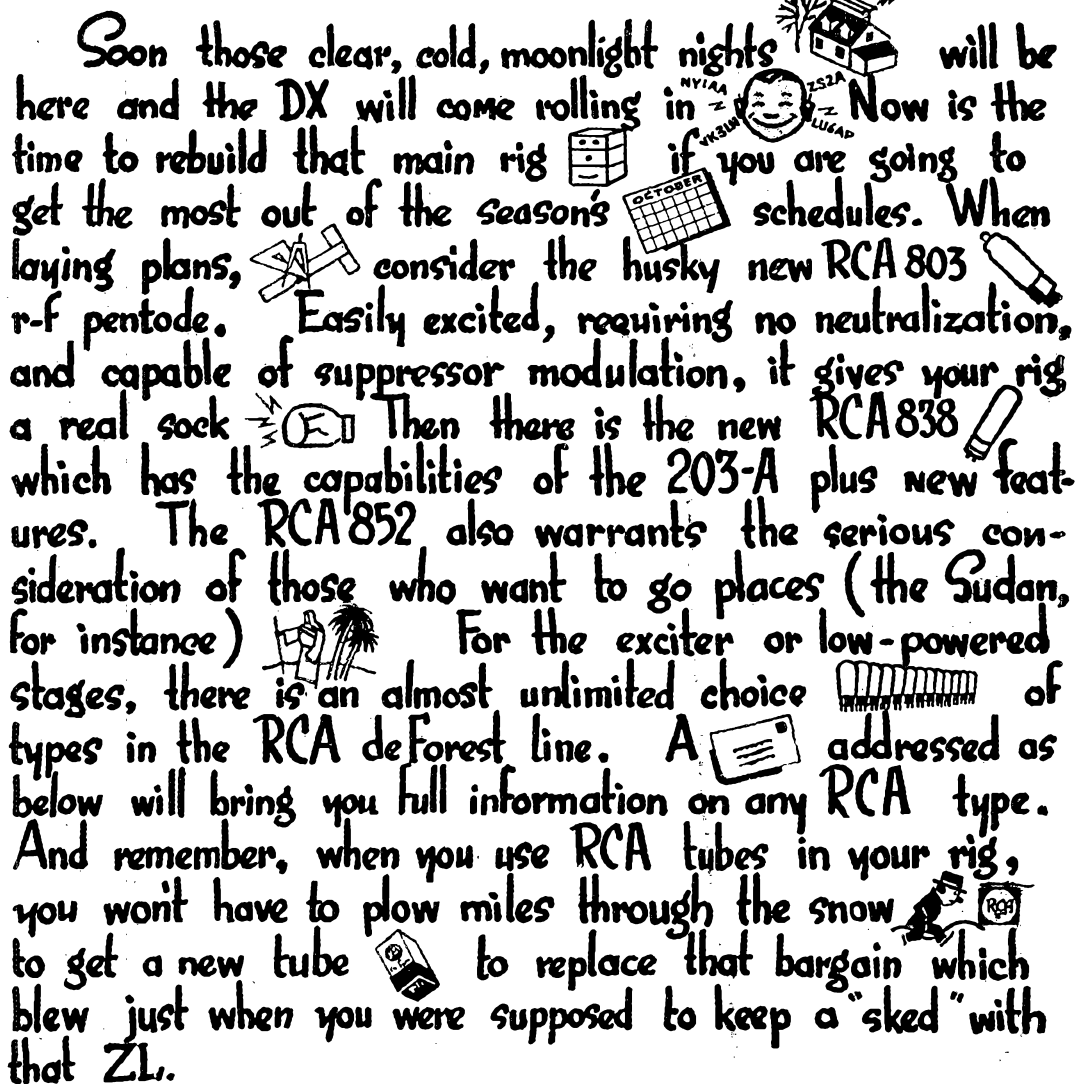 Soon those clear, cold, moonlight nights will be
here and the DX will come rolling in NY1AA ZS2A VK3LN LU6AP Now is the
time to rebuild that main rig if you are going to
get the most out of the season's OCTOBER schedules. When
laying plans, consider the husky new RCA 803
r-f pentode. Easily excited, requiring no neutralization,
and capable of suppressor modulation, it gives your rig
a real sock Then there is the new RCA 838
which has the capabilities of the 203-A plus new feat-
ures. The RCA 852 also warrants the serious con-
sideration of those who want to go places (the Sudan,
for instance) For the exciter or low-powered
stages, there is an almost unlimited choice of
types in the RCA deForest line. A addressed as
below will bring you full information on any RCA type.
And remember, when you use RCA tubes in your rig,
you won't have to plow miles through the snow RCA
to get a new tube to replace that bargain which
blew just when you were supposed to keep a "sked" with
that ZL.